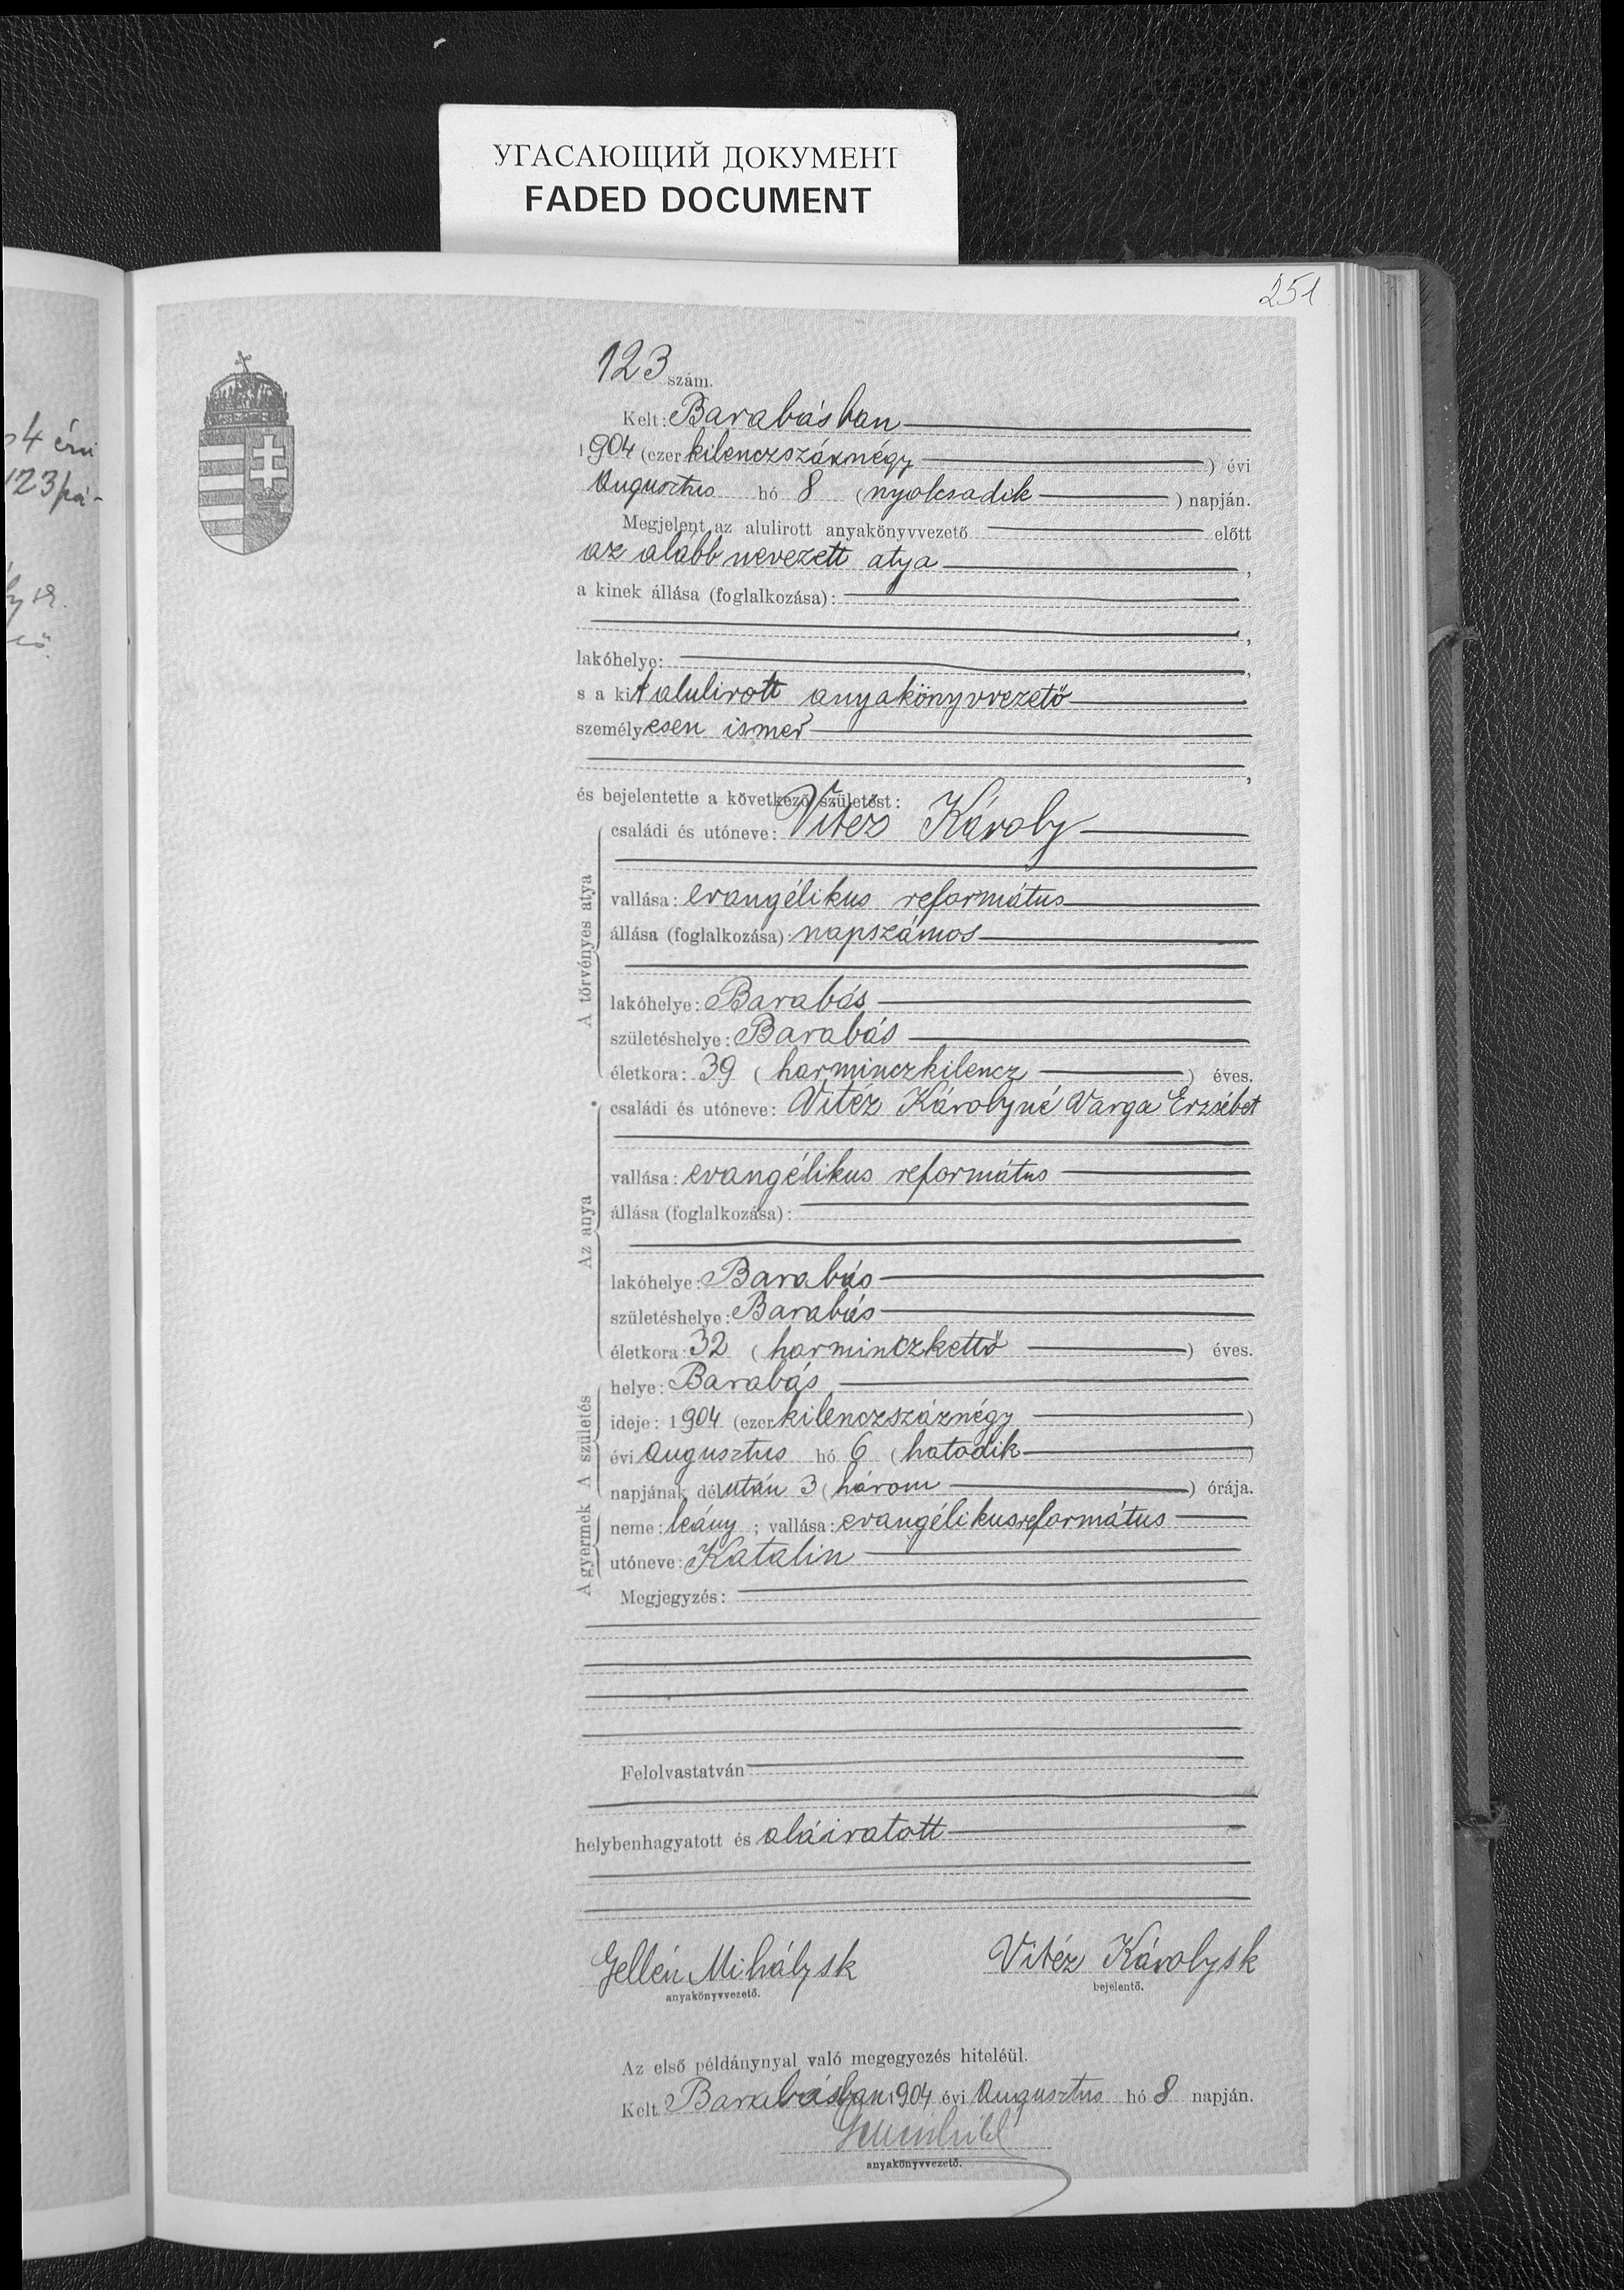 УГАСАЮЩИЙ ДОКУМЕНТ
FADED DOCUMENT
251
4 évi
123 pá-
123 szám.
Kelt: Barabásban
1904 (ezer kilenczszáznégy) évi
Augusztus hó 8 (nyolcsadik) napján.
Megjelent az alulirott anyakönyvvezető előtt
az alább nevezett atya,
a kinek állása (foglalkozása):
,
lakóhelye: ,
s a kit alulirott anyakönyvvezető
személyesen ismer
,
és bejelentette a következő születést:
A törvényes atya
családi és utóneve: Vitéz Károly
vallása: evangélikus református
állása (foglalkozása): napszámos
lakóhelye: Barabás
születéshelye: Barabás
életkora: 39 (harminczkilencz) éves.
Az anya
családi és utóneve: Vitéz Károlyné Varga Erzsébet
vallása: evangélikus református
állása (foglalkozása):
lakóhelye: Barabás
születéshelye: Barabás
életkora: 32 (harminczkettő) éves.
A születés
helye: Barabás
ideje: 1904 (ezer kilenczszáznégy)
évi augusztus hó 6 (hatodik)
napjának délután 3 (három) órája.
A gyermek
neme: leány; vallása: evangélikus református
utóneve: Katalin
Megjegyzés:
Felolvastatván
helybenhagyatott és aláiratott
Gellén Mihály sk Vitéz Károly sk
anyakönyvvezető. bejelentő.
Az első példánynyal való megegyezés hiteléül.
Kelt Barabásban 1904 évi Augusztus hó 8 napján.
anyakönyvvezető.